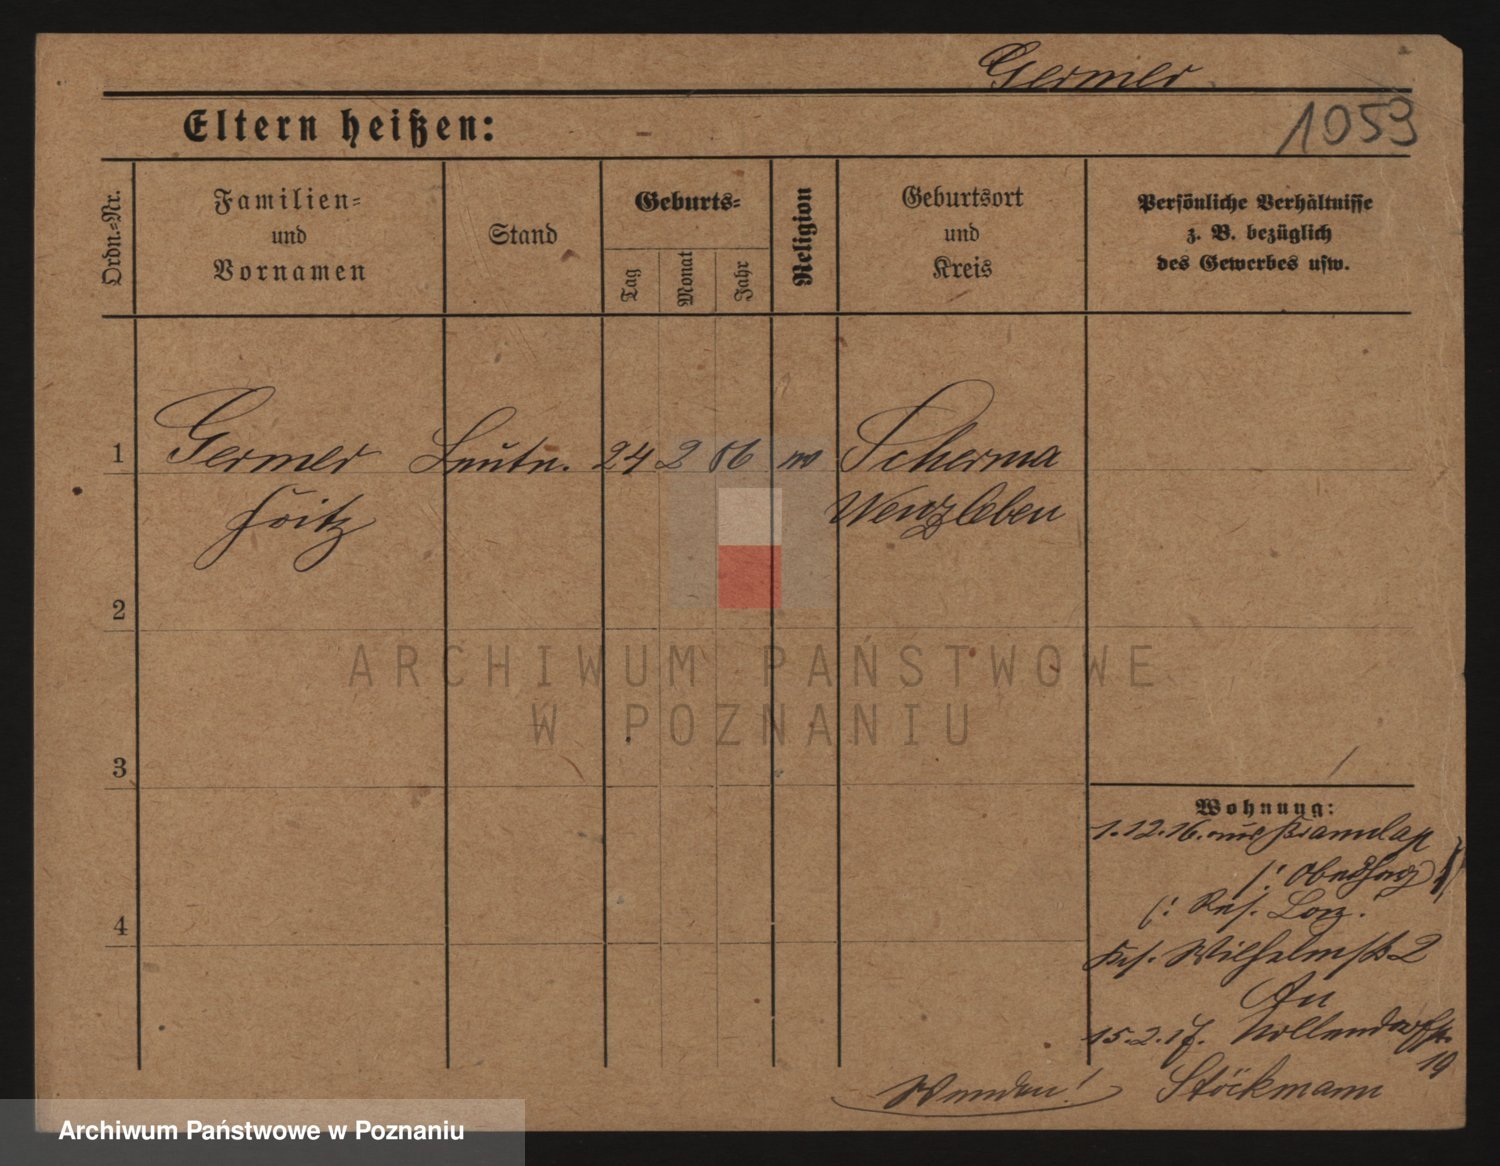 Germer
1059
Eltern heißen:
Ordn.-Nr.
Familien-
und
Vornamen
Stand
Geburts-
Tag
Monat
Jahr
Religion
Geburtsort
und
Kreis
Persönliche Verhältnisse
z. B. bezüglich
des Gewerbes usw.
1
Germer Leutn. 24 2 86 Scherma
Fritz Wenzleben
2
ARCHIWUM PAŃSTWOWE
W POZNANIU
3
Wohnung:
1.12.16. aus
(: Res. Laz.
4
Wilhelmstr 2
An
15.2.17. Nollendorfstr.
19
Wenden! Stöckmann
Archiwum Państwowe w Poznaniu